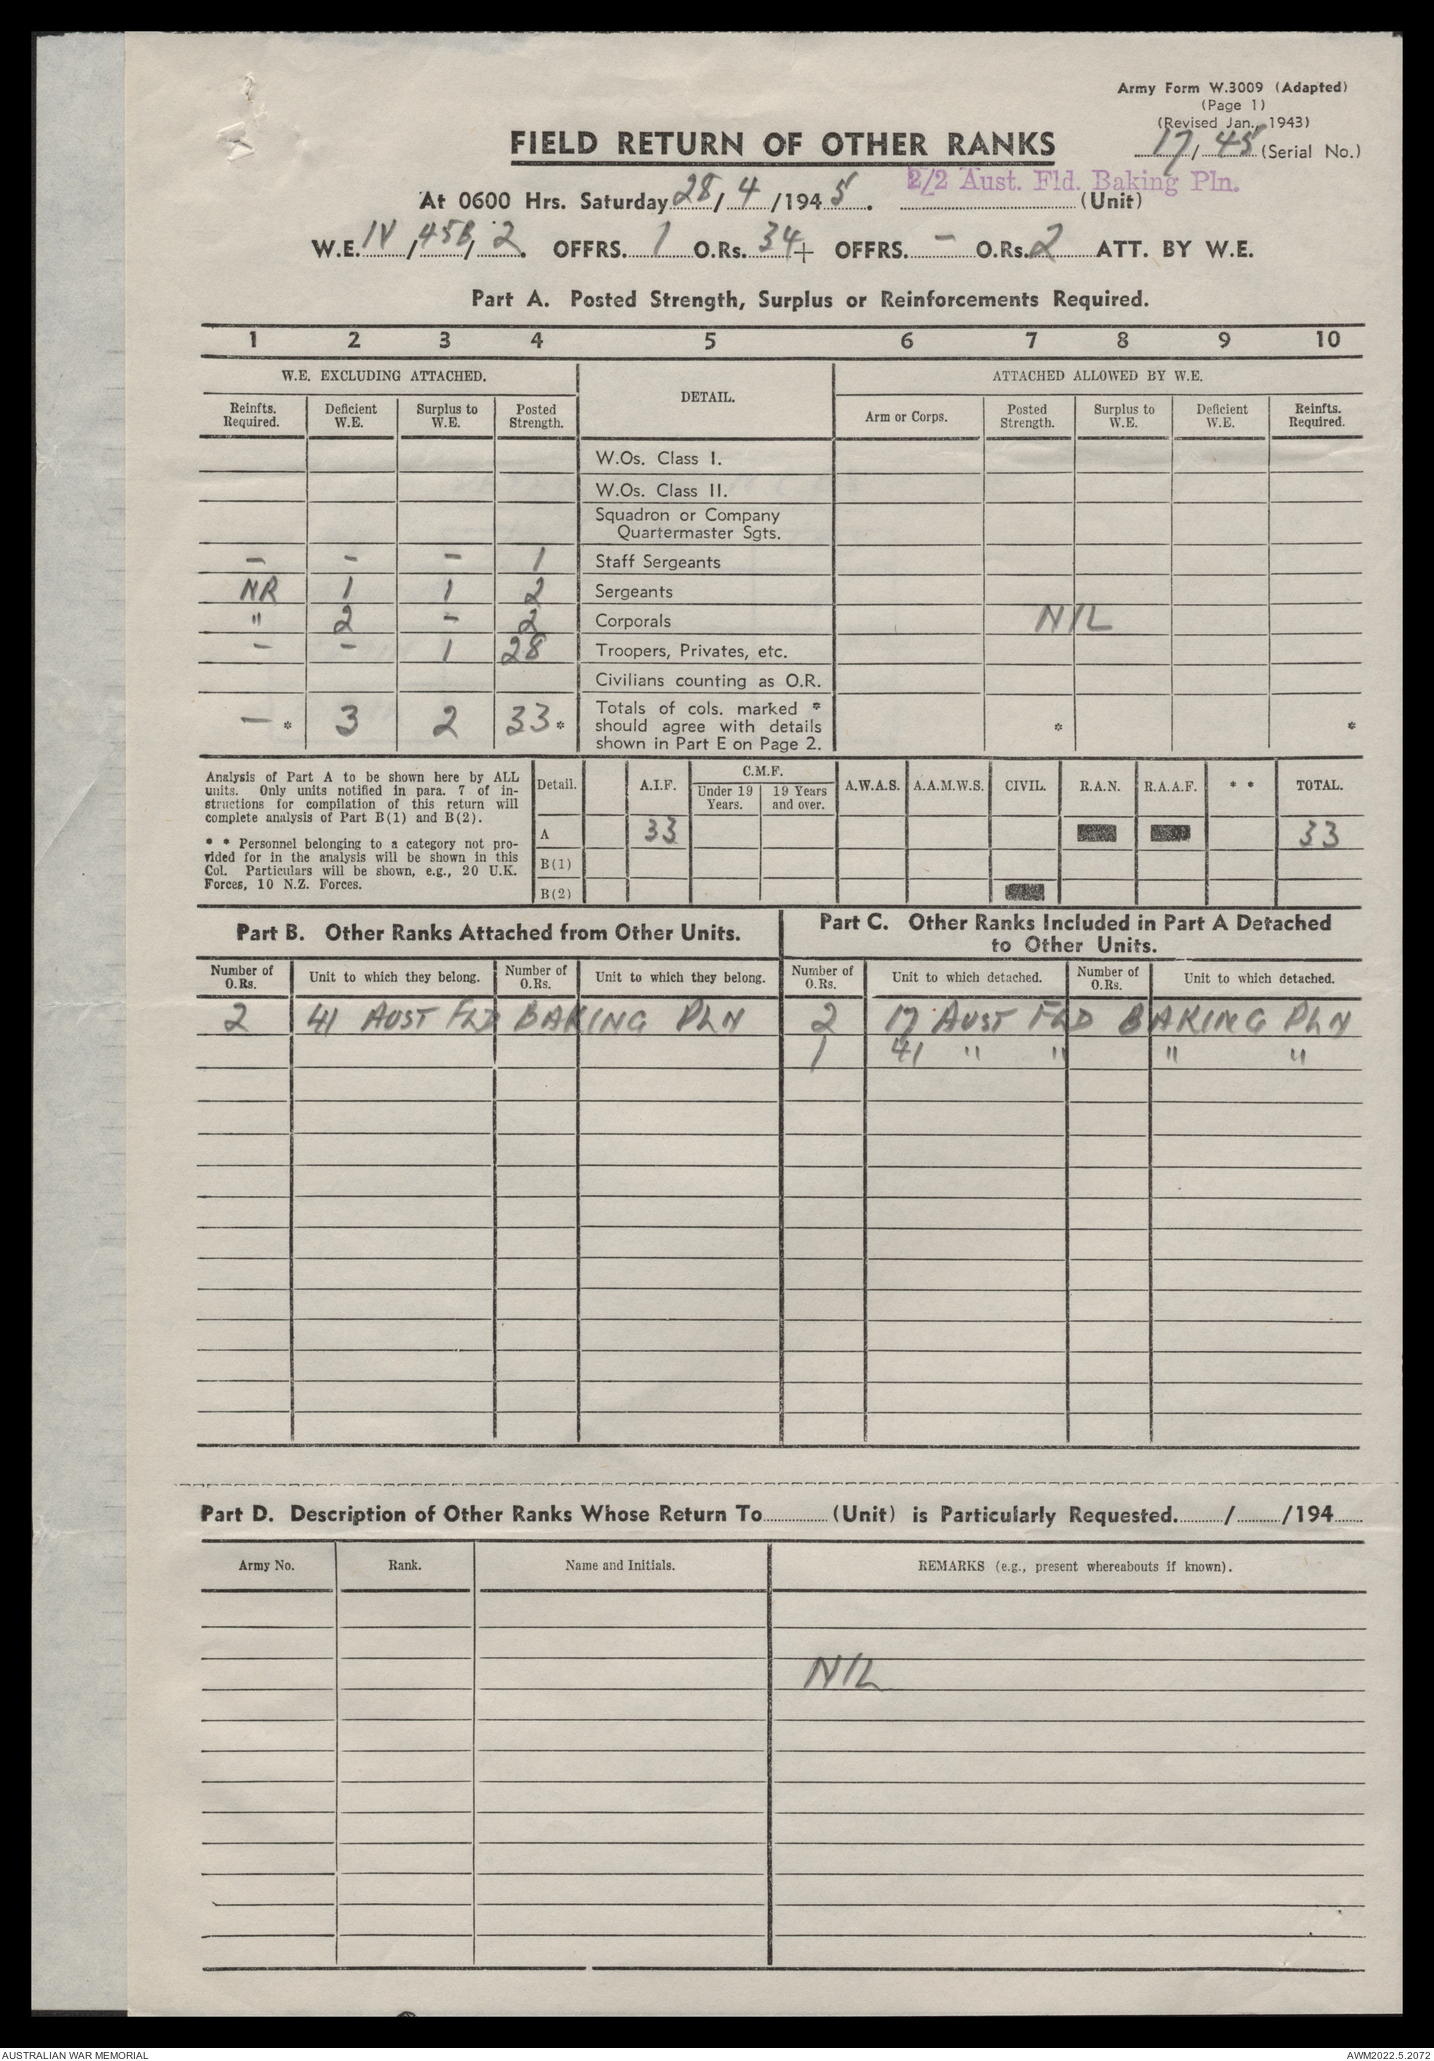 Army Form W.3009 (Adapted)
(Page 1)
(Revised Jan., 1943)
FIELD RETURN OF OTHER RANKS
17/45 (Serial No.)
2/2 Aust. Fld. Baking Pln.
At 0600 Hrs. Saturday 28/4/1945. (Unit)
W.E. IV/45B/2. OFFRS. 1 O.Rs. 34 + OFFRS. - O.Rs. 2 ATT. BY W.E.
Part A. Posted Strength, Surplus or Reinforcements Required.
1 2 3 4 5 6 7 8 9 10
W.E. EXCLUDING ATTACHED. DETAIL. ATTACHED ALLOWED BY W.E.
Reinfts. Required. Deficient W.E. Surplus to W.E. Posted Strength. Arm or Corps. Posted Strength. Surplus to W.E. Deficient W.E. Reinfts. Required.
W.Os. Class I.
W.Os. Class II.
Squadron or Company
Quartermaster Sgts.
- - - 1 Staff Sergeants
NR 1 1 2 Sergeants
" 2 - 2 Corporals NIL
- - 1 28 Troopers, Privates, etc.
Civilians counting as O.R.
Totals of cols. marked *
- * 3 2 33 * should agree with details * *
shown in Part E on Page 2.
Analysis of Part A to be shown here by ALL
units. Only units notified in para. 7 of in-
structions for compilation of this return will
complete analysis of Part B(1) and B(2).
* * Personnel belonging to a category not pro-
vided for in the analysis will be shown in this
Col. Particulars will be shown, e.g., 20 U.K.
Forces, 10 N.Z. Forces.
C.M.F.
Detail. A.I.F. Under 19 Years. 19 Years and over. A.W.A.S. A.A.M.W.S. CIVIL. R.A.N. R.A.A.F. * * TOTAL.
A 33 33
B(1)
B(2)
Part B. Other Ranks Attached from Other Units.
Part C. Other Ranks Included in Part A Detached
to Other Units.
Number of O.Rs. Unit to which they belong. Number of O.Rs. Unit to which they belong. Number of O.Rs. Unit to which detached. Number of O.Rs. Unit to which detached.
2 41 AUST FLD BAKING PLN 2 17 AUST FLD BAKING PLN
1 41 " " " "
Part D. Description of Other Ranks Whose Return To (Unit) is Particularly Requested. / /194
Army No. Rank. Name and Initials. REMARKS (e.g., present whereabouts if known).
NIL
AUSTRALIAN WAR MEMORIAL AWM2022.5.2072